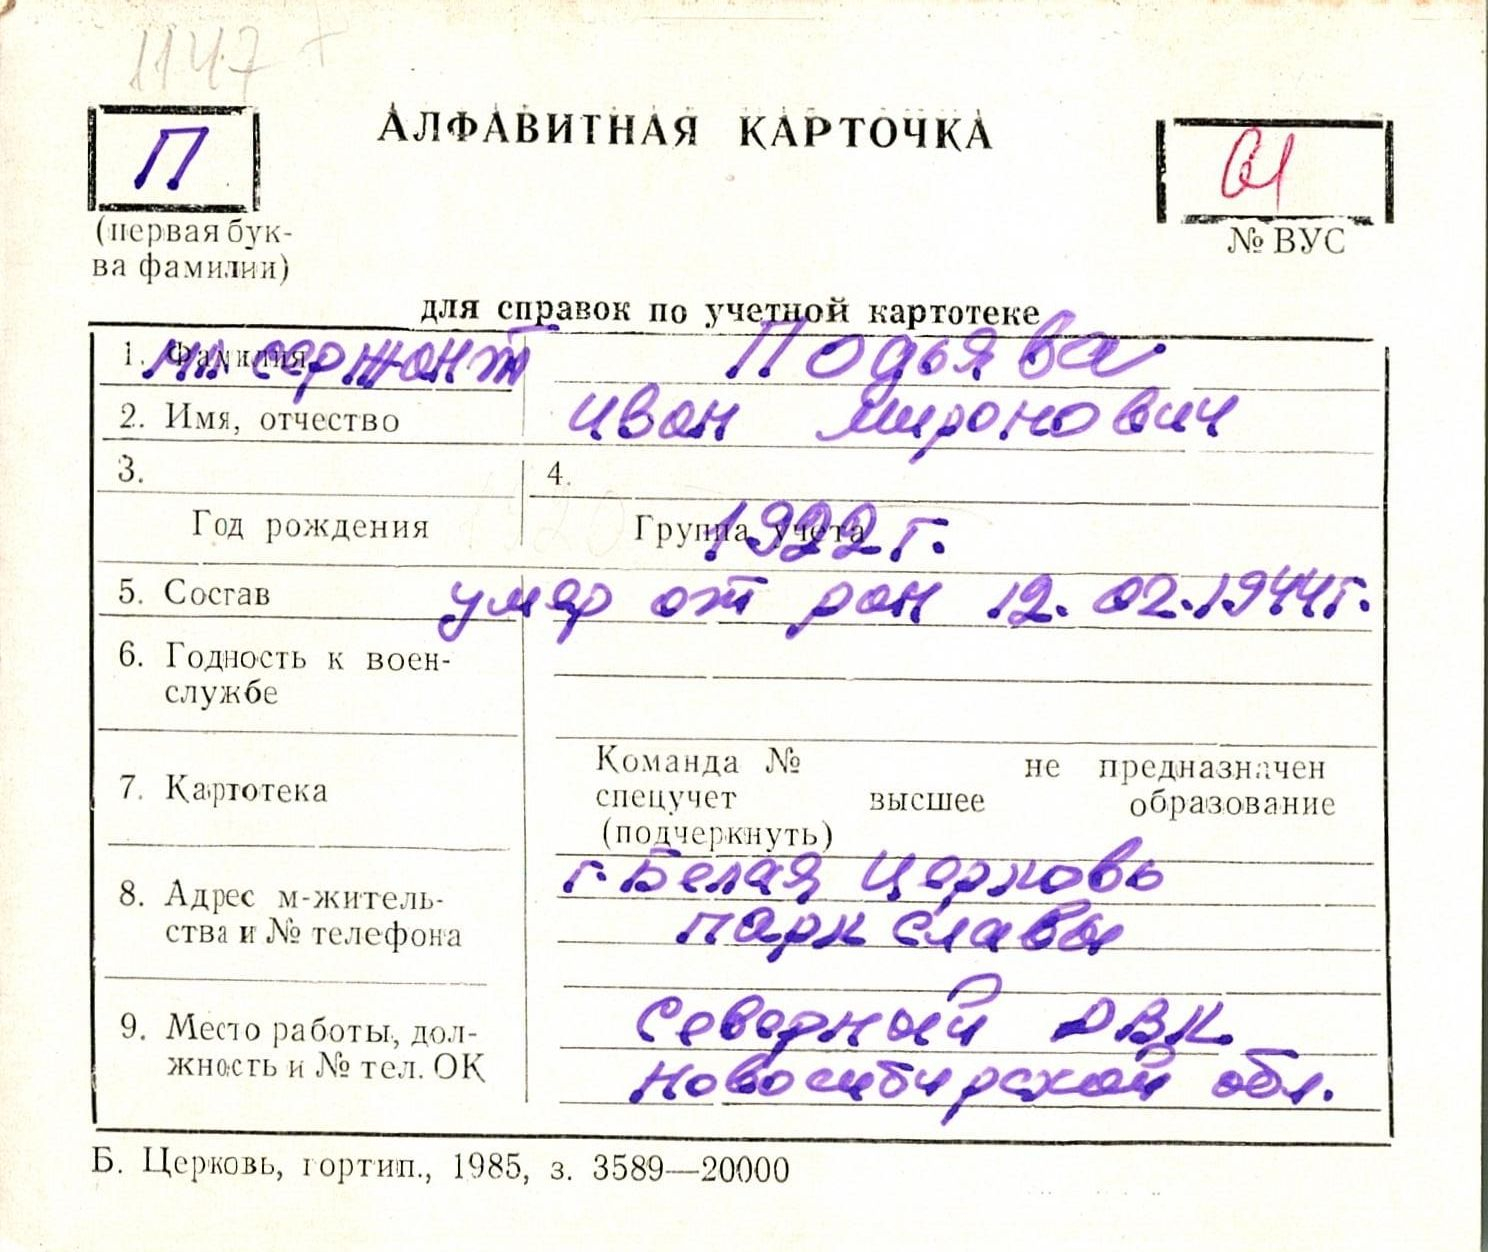 1147 +
АЛФАВИТНАЯ КАРТОЧКА
П
61
(первая бук-
ва фамилии)
№ ВУС
для справок по учетной картотеке
1. Фамилия мл сержант Подьява
2. Имя, отчество Иван Миронович
3. 4.
Год рождения Группа учета 1922 г.
5. Состав умер от ран 12.02.1944г.
6. Годность к воен-
службе
7. Картотека
Команда № не предназначен
спецучет высшее образование
(подчеркнуть)
8. Адрес м-житель-
ства и № телефона
г. Белая Церковь
парк Славы
9. Место работы, дол-
жность и № тел. ОК
Северный РВК
Новосибирской обл.
Б. Церковь, гортип., 1985, з. 3589—20000